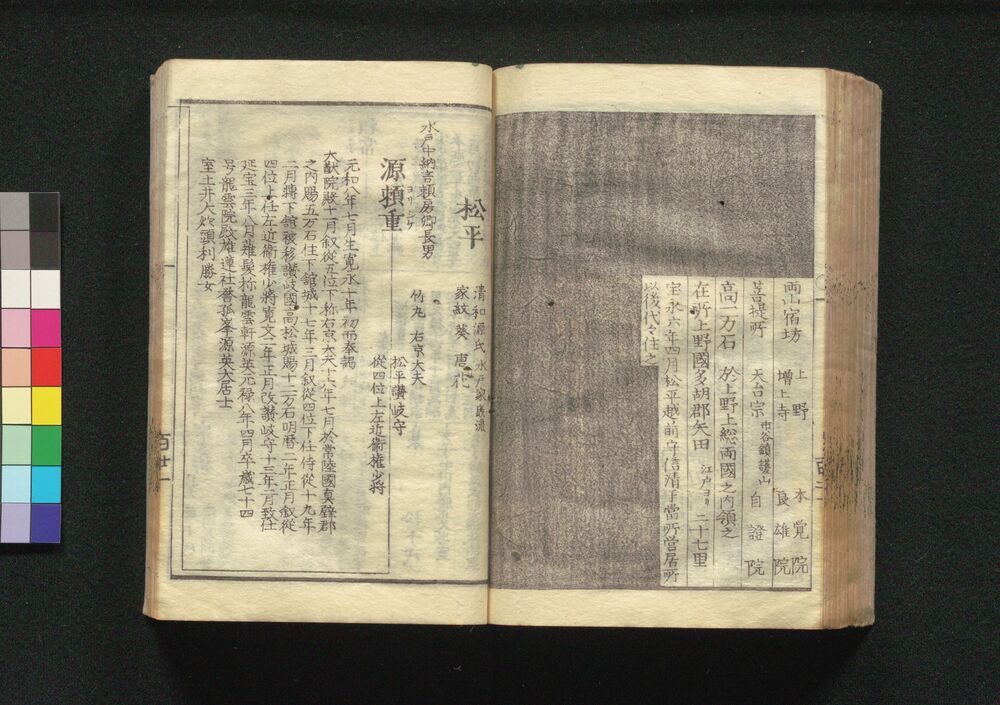 両山宿坊 上野 本覚院
増上寺 良雄院
菩提所 天台宗 市谷鎮護山 自證院
高一万石 於上野上総両國之内領之
在所上野國多胡郡矢田 江戸ヨリ 二十七里
宝永六年四月松平越前守信清于當所営居所
以後代々住之
松平
清和源氏 水戸家庶流
家紋 葵
水戸中納言頼房卿長男
竹丸 右京大夫
源頼重
ヨリシゲ
松平讃岐守
從四位上左近衛権少将
元和八年七月生寛永十年初而奉謁
大猷院殿十一月叙從五位下称右京大夫十六年七月於常陸國真壁郡
之内賜五万石住下舘城十七年三月叙從四位下任侍從十九年
二月轉下舘被移讃岐國高松城賜十二万石明暦二年正月叙從
四位上任左近衛権少将寛文二年正月改讃岐守十三年二月致仕
延宝三年八月薙髪称龍雲軒源英元禄八年四月卒歳七十四
号龍雲院殿雄蓮社誉孤峯源英大居士
室土井大炊頭利勝女
百廿一